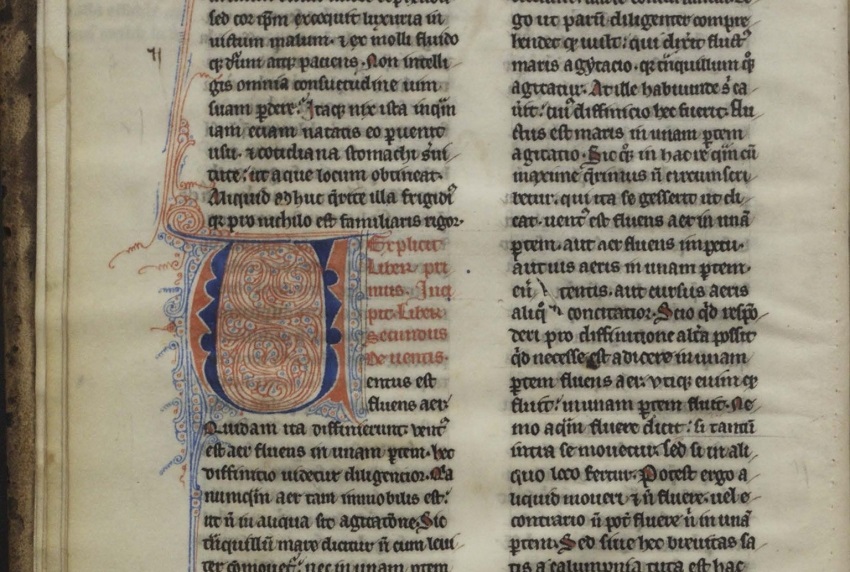 sed cor ipm excoquit luxuria in
uictum malum. ⁊ ex molli fluido
q; durum atq; paciens. Non intelli
gis omnia consuetudine uim
suam pdere. Itaq; nix ista in qua
iam eciam natatis eo puenit
usu. ⁊ cotidiana stomachi sui
tute. ut aque locum obtineat.
Aliquid adhuc qrite illa frigidi
q pro nichilo est familiaris rigor.
Explicit
Liber pri
mus. Inci
pit Liber
Secundus
de uentis.
Uentus est
fluens aer.
Quidam ita diffinierunt uent
est aer fluens in unam ptem. hec
diffinitio uidetur diligencior. Na
numqin aer tam immobilis est.
ut n in aliqua sit agitatone. Sic
tnquillu mare dicitur n cum leui
ter comouet. nec in unam ptem
go ut parum diligenter compre
hendet q uult. qui dixit fluct
maris agytacio. qr tnquillum q
agitatur. At ille habunde s ca
uit. cui diffinicio hec fuerit. flu
ctus est maris in unam ptem
agitatio. Sic q in hac re
maxime n circumscri
betur. qui ita se gesserit ut di
cat. uent est fluens aer in una
ptem. aut aer fluens impetu.
aut uis aeris in unam ptem
eu tentis. aut cursus aeris
aliq concitatior. Scio qd respo
deri pro diffinitione altera possit
qd necesse est adicere in unam
ptem fluens aer. vtiq; enim q
fluit. in unam ptem fluit. Ne
mo aqm fluere dicit. si tantu
intra se mouetur. sed si in ali
quo loco fertur. Potest ergo a
liquid moueri ⁊ n fluere. uel e
contrario n pot fluere n in una
ptem. Sed siue hec breuitas sa
tis a calumpnia tuta est hac